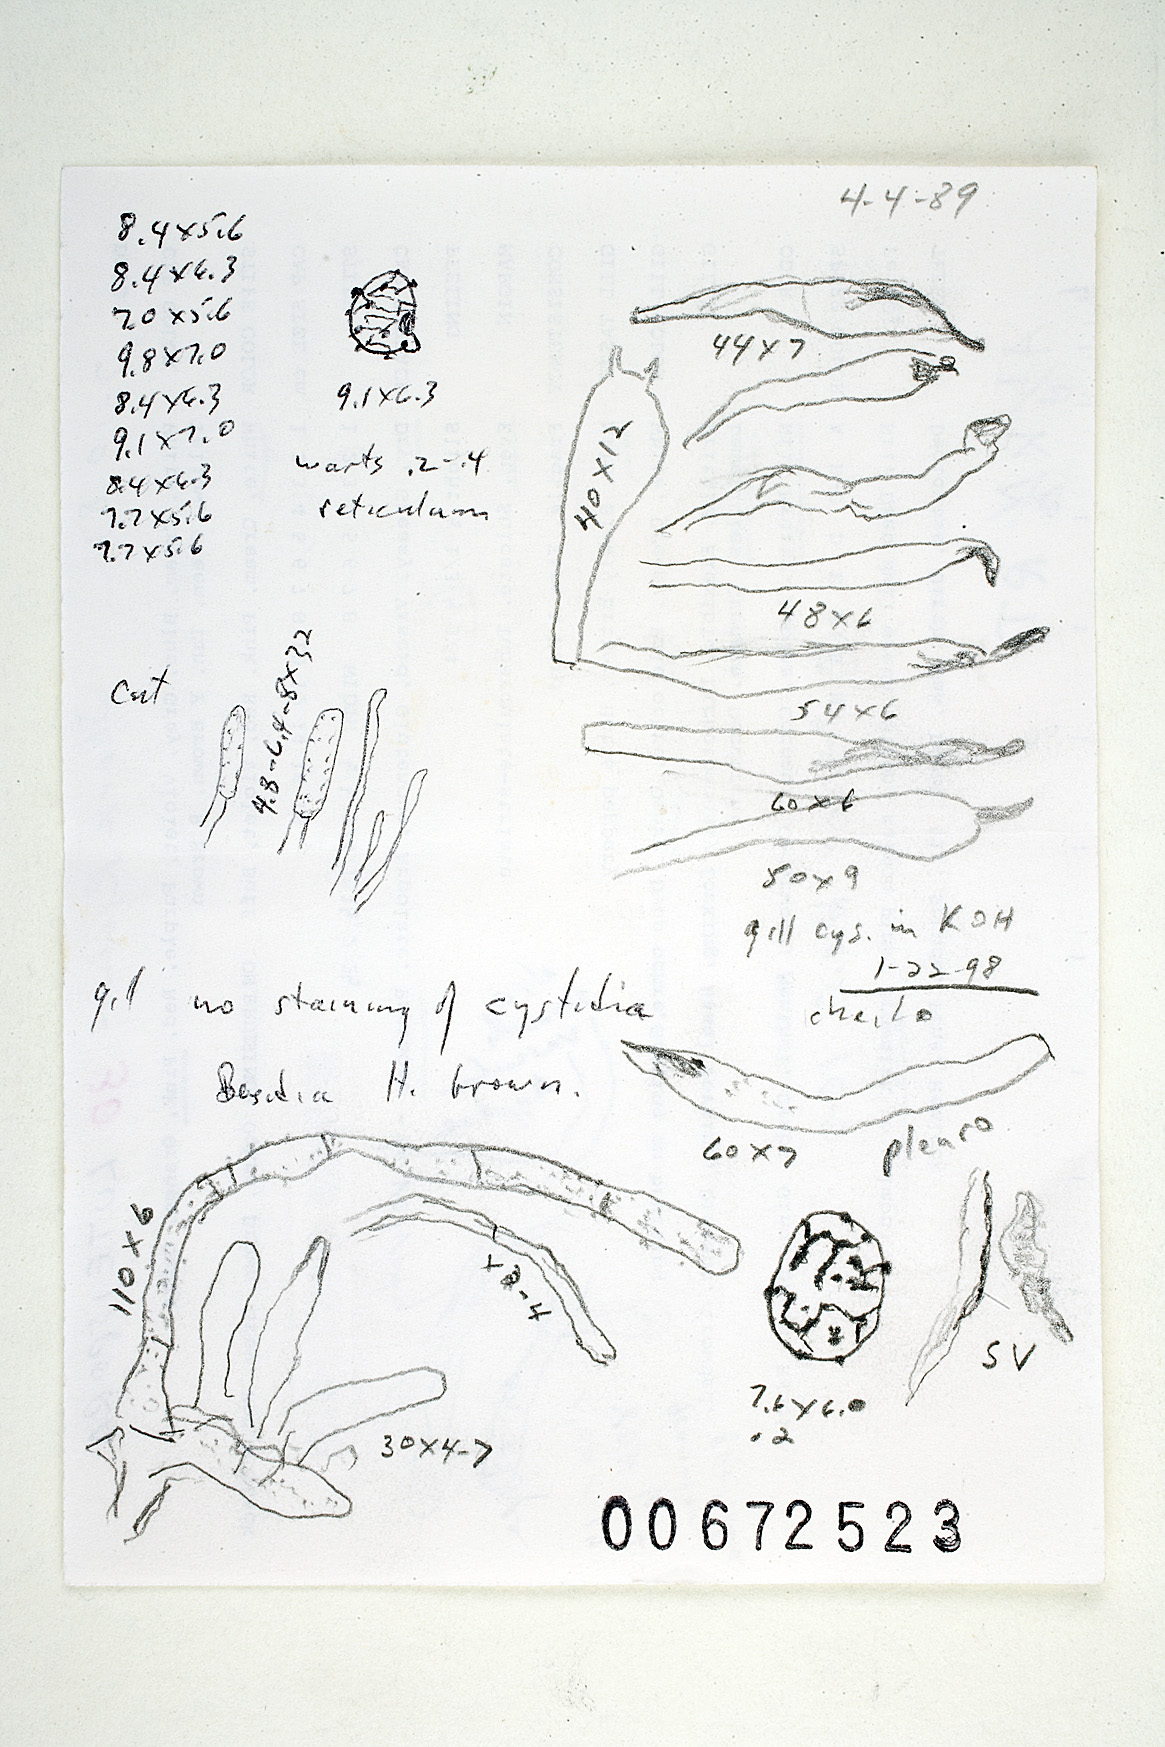 4-4-89
8.4x5.6
8.4x6.3
7.0x5.6
9.8x7.0
8.4x6.3
9.1x7.0
8.4x6.3
7.7x5.6
7.7x5.6
9.1x6.3
warts .2-.4
reticulum
44x7
40x12
48x6
54x6
60x6
50x9
gill cys. in KOH
1-22-98
cheilo
60x7
pleuro
cut
4.8-6.4-8x32
gill no staining of cystidia
Basidia H. brown.
110x6
x3-4
30x4-7
7.6x6.0
.2
SV
00672523